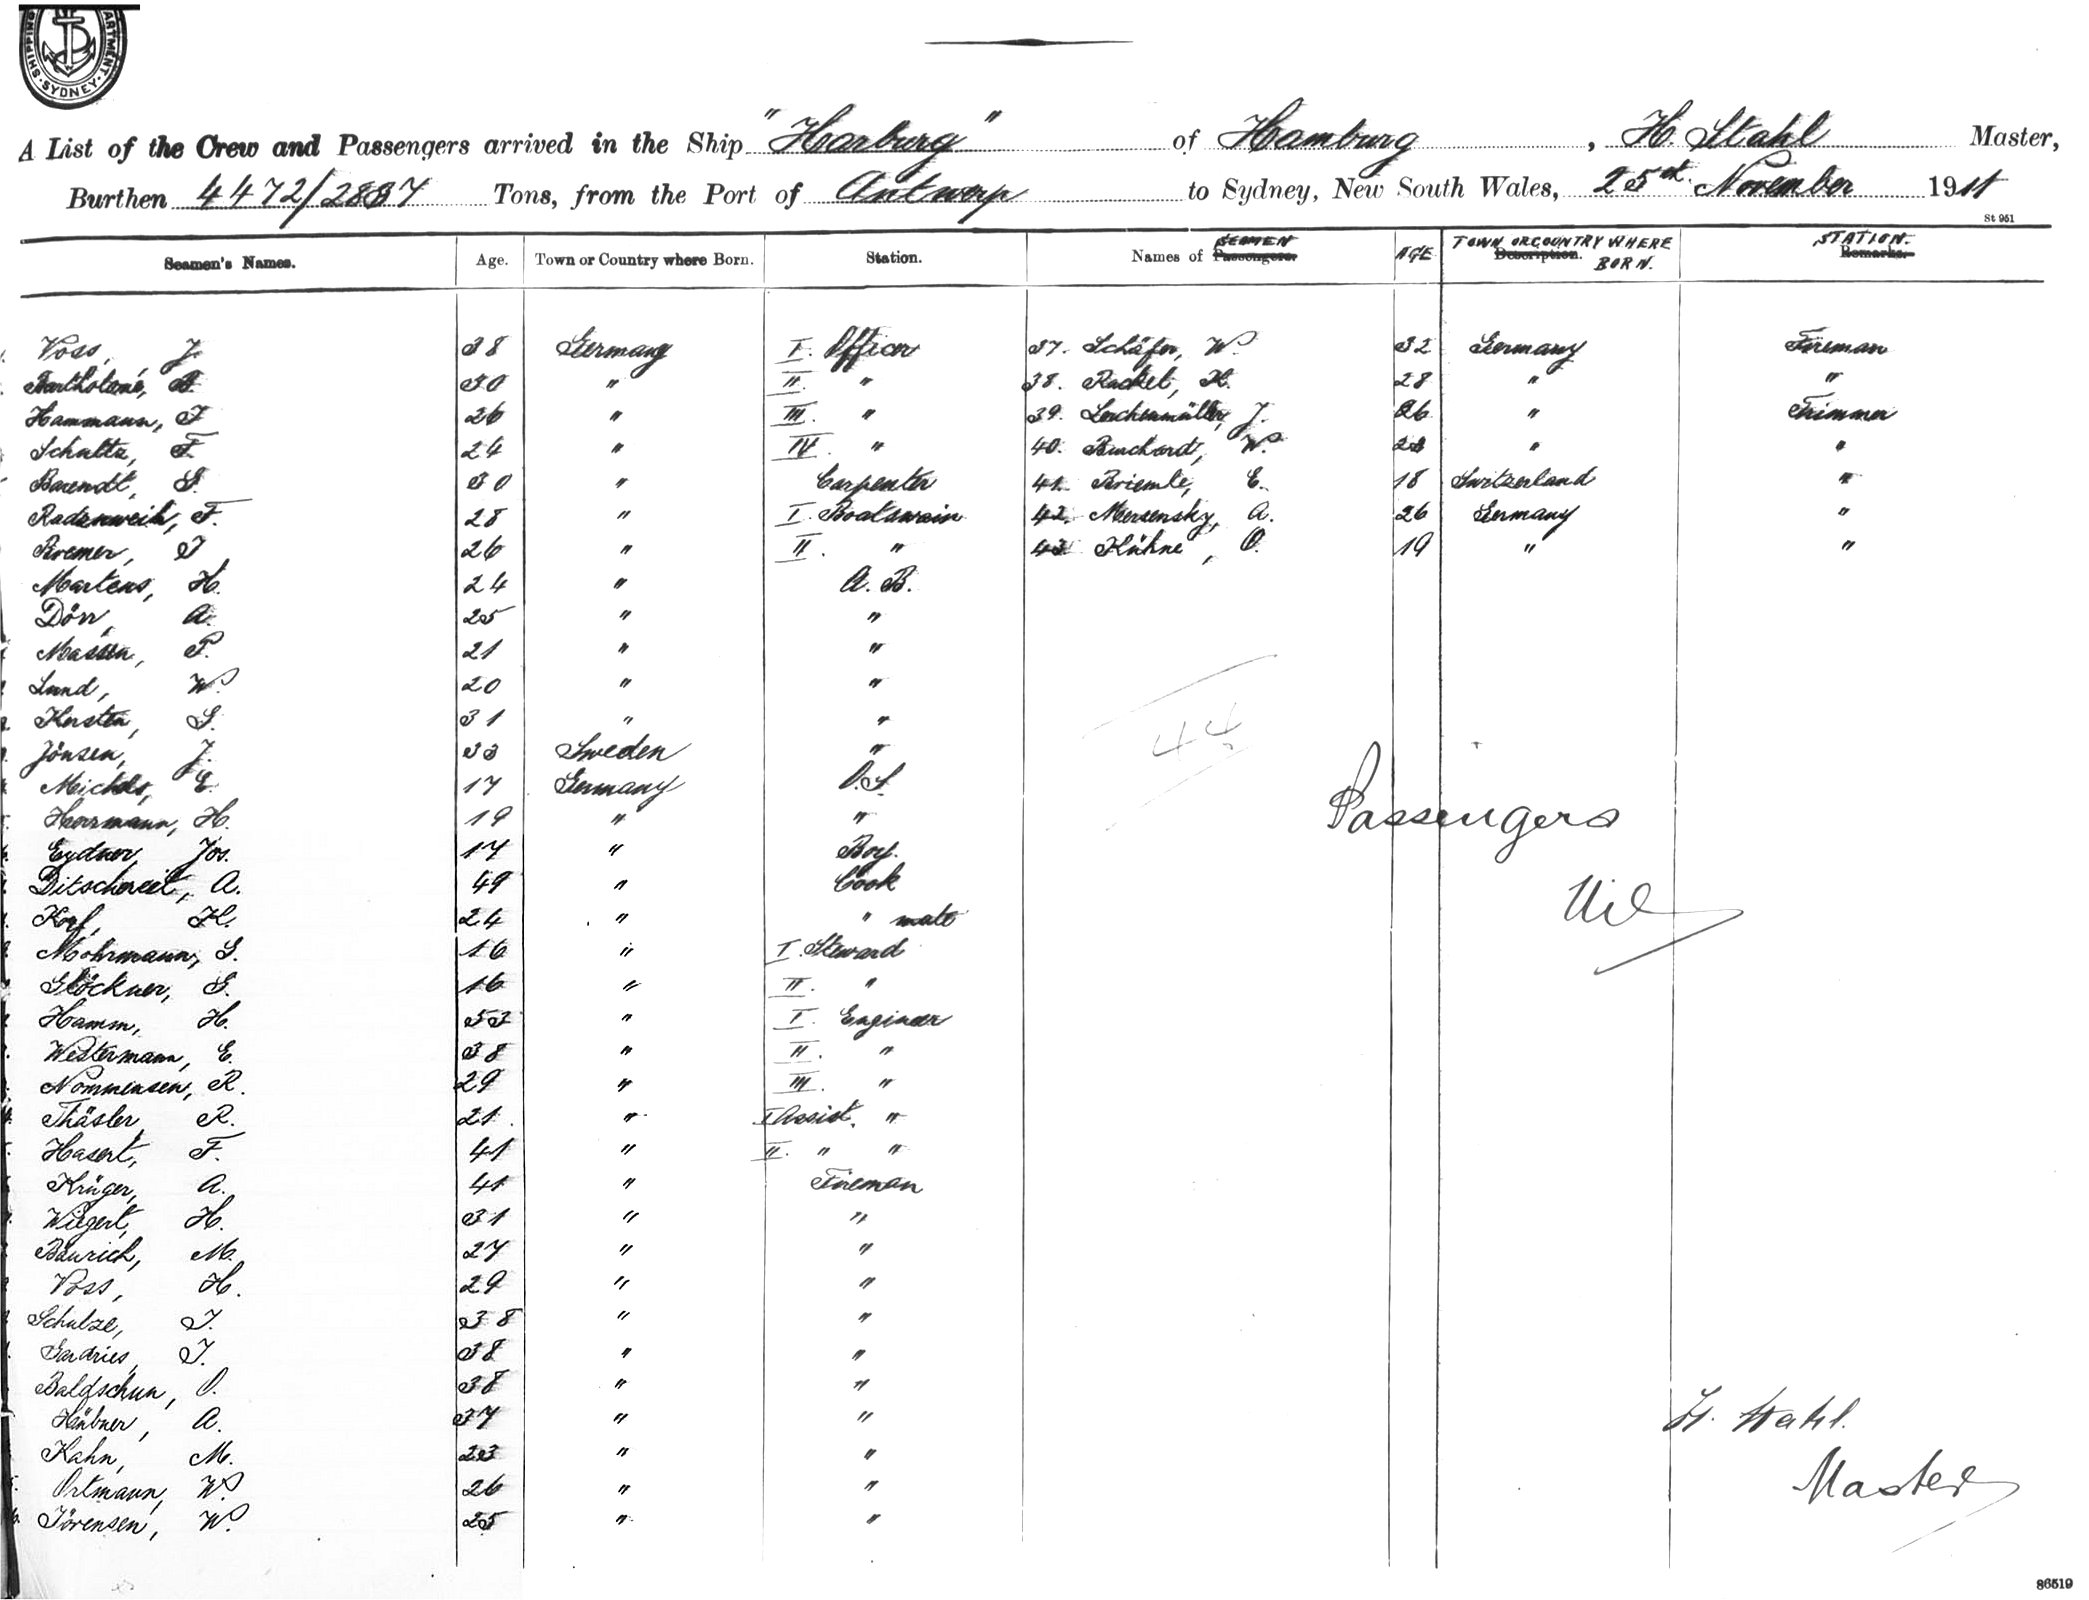 SHIPPING DEPARTMENT SYDNEY
A List of the Crew and Passengers arrived in the Ship "Harburg" of Hamburg, H. Stahl Master,
Burthen 4472/2887 Tons, from the Port of Antwerp to Sydney, New South Wales, 25st November 1911
St 951
Seamen's Names. Age. Town or Country where Born. Station. Names of Passengers. SEAMEN AGE Description. TOWN OR COUNTRY WHERE BORN. Remarks. STATION.
Voss, J. 38 Germany I. Officer 37. Schäfer, W. 32 Germany Fireman
Bartholomé, B. 30 " II. " 38. Rackel, H. 28 " "
Hammann, F. 26 " III. " 39. Lochenmüller, J. 26 " Trimmer
Schultz, F. 24 " IV. " 40. Burchardt, W. " "
Barendt, G. 30 " Carpenter 41. Briemle, E. 18 Switzerland "
F. 28 " I. Boatswain 42. Mersensky, A. 26 Germany "
Bremer, J. 26 " II. " 43. Kühne, O. 19 " "
Martens, H. 24 " A. B.
Dörr, A. 25 " "
Massen, P. 21 " "
Lund, W. 20 " "
Kersten, G. 31 " "
Jönsen, J. 33 Sweden "
Michels, E. 17 Germany O.S.
Herrmann, H. 19 " "
Eydner, Jos. 17 " Boy.
Ditschereit, A. 49 " Cook
Korf, H. 24 " " mate
Mohrmann, G. 16 " I. Steward
Glöckner, G. 16 " II. "
Hamm, H. 53 " I. Engineer
Westermann, E. 38 " II. "
Nommensen, R. 29 " III. "
Thäsler, R. 21. " I Assist. "
Hasert, F. 41 " II. " "
Krüger, A. 41 " Fireman
Wiegert, H. 31 " "
Baurich, M. 27 " "
Voss, H. 29 " "
Schulze, J. 38 " "
Gardries, J. 38 " "
Baldschun, O. 38 " "
Hübner, A. 37 " "
Kahn, M. 23 " "
Ortmann, W. 26 " "
Sörensen, W. 25 " "
44
Passengers
Nil
H. Stahl.
Master
86519